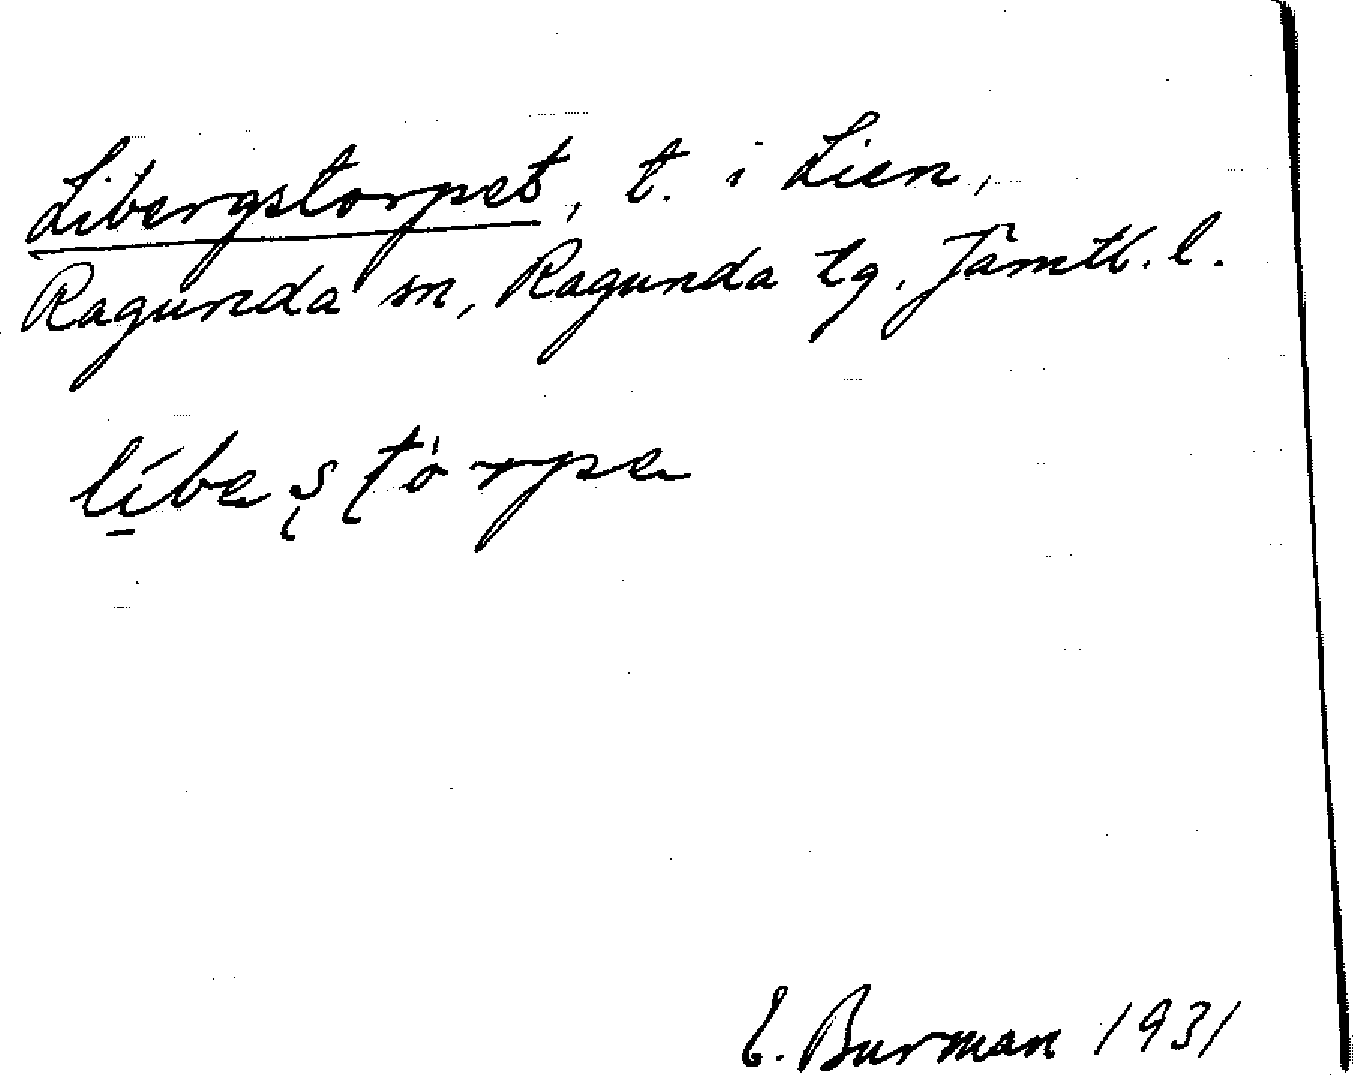 Libergstorpet, t. i Lien,
Ragunda sn, Ragunda tg. Jämtl. l.
líbeʂʈòrpa
E. Burman 1931